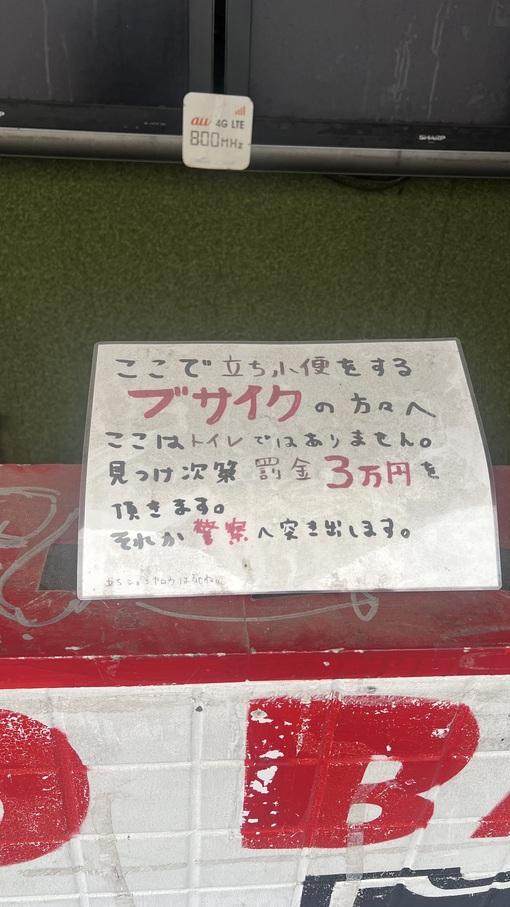 au 4G LTE
800MHz
SHARP
ここで立ち小便をする
ブサイクの方々へ
ここはトイレではありません。
見つけ次第罰金3万円を
頂きます。
それか警察へ突き出します。
B